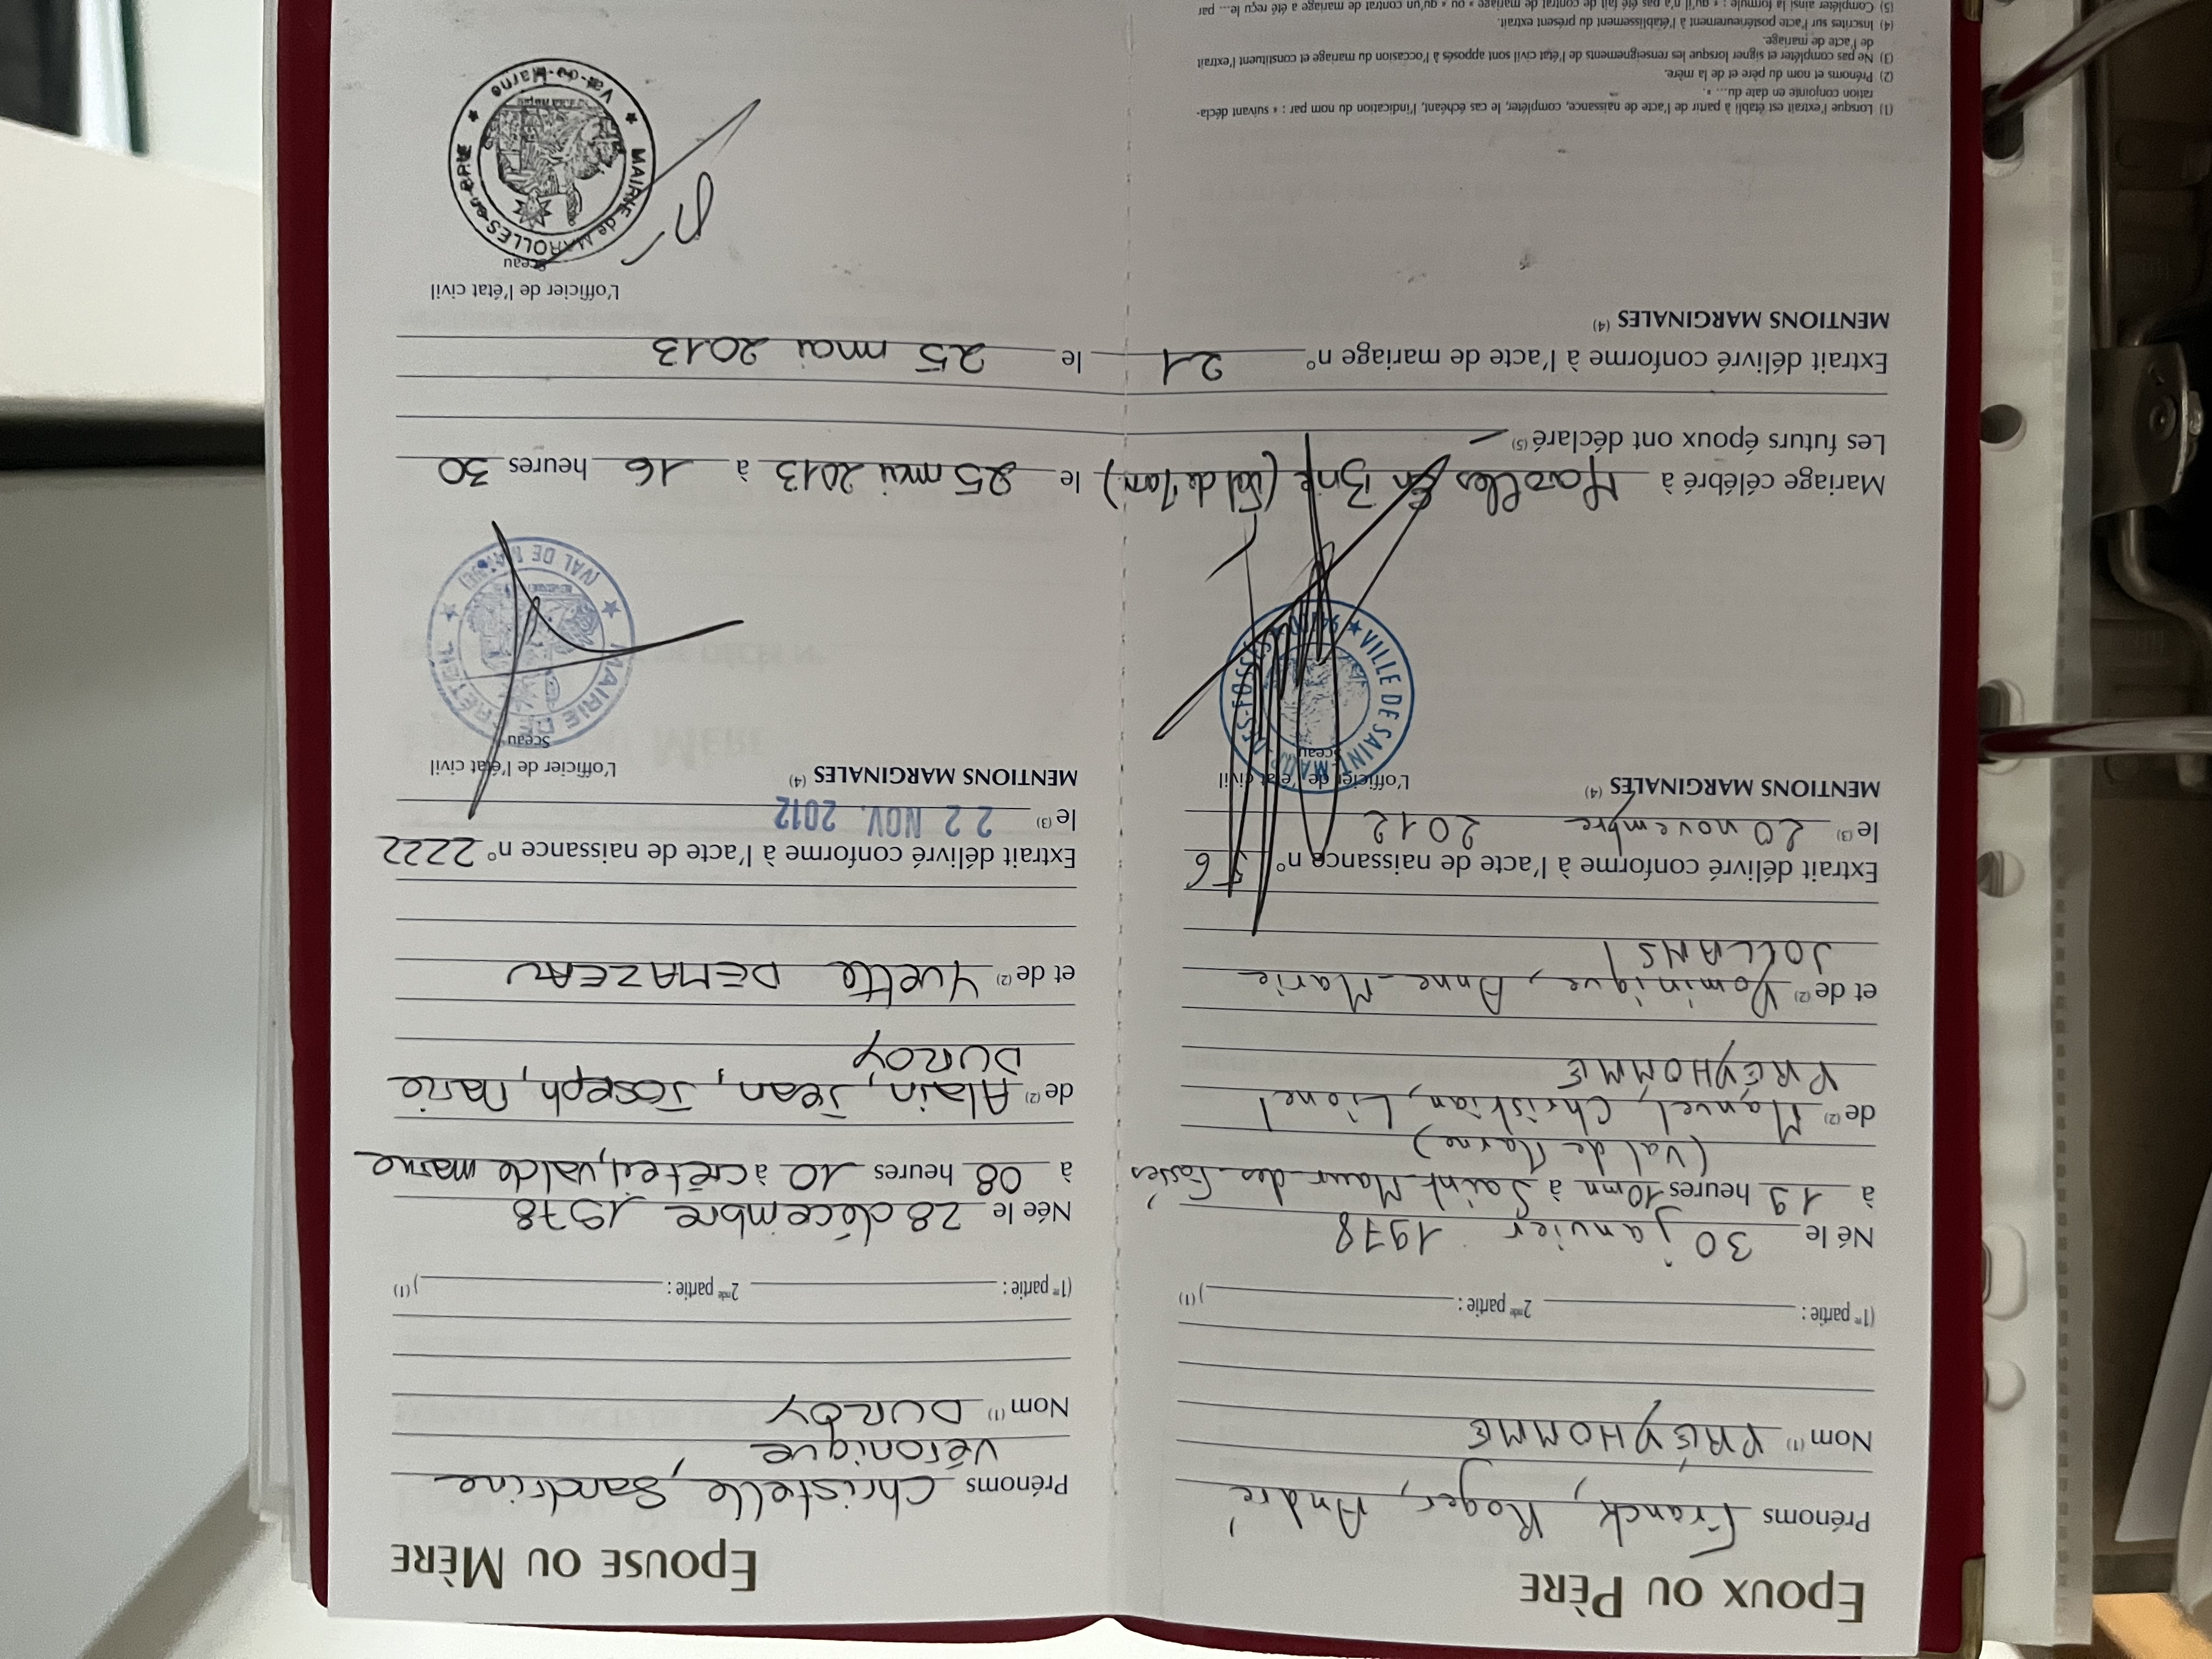 EPOUX OU PÈRE
Prénoms Franck, Roger, André
Nom (1) PRÉVHOMME
(1re partie : 2nde partie : ) (1)
Né le 30 janvier 1978
à 19 heures 10mn à Saint-Maur-des-Fossés
(Val de Marne)
de (2) Manuel, Christian, Lionel
PRÉVHOMME
et de (2) Dominique, Anne-Marie
JOLLANS
Extrait délivré conforme à l'acte de naissance n° 56
le (3) 20 novembre 2012
MENTIONS MARGINALES (4)
L'officier de l'état civil
Sceau
VILLE DE SAINT-MAUR-DES-FOSSÉS ★ 94100 ★
EPOUSE OU MÈRE
Prénoms Christelle, Sandrine
Véronique
Nom (1) DUROY
(1re partie : 2nde partie : ) (1)
Née le 28 décembre 1978
à 08 heures 10 à créteil, val de marne
de (2) Alain, Jean, Joseph, Marie
DUROY
et de (2) Yvette DEMAZEAU
Extrait délivré conforme à l'acte de naissance n° 2222
le (3) 22 NOV. 2012
MENTIONS MARGINALES (4)
L'officier de l'état civil
Sceau
MAIRIE DE CRÉTEIL ★ (VAL DE MARNE) ★
Mariage célébré à Marolles En Brie (Val de Marne) le 25 mai 2013 à 16 heures 30
Les futurs époux ont déclaré (5)
Extrait délivré conforme à l'acte de mariage n° 21 le 25 mai 2013
MENTIONS MARGINALES (4)
L'officier de l'état civil
Sceau
MAIRIE de MAROLLES-en-BRIE ★ Val-de-Marne ★
(1) Lorsque l'extrait est établi à partir de l'acte de naissance, compléter, le cas échéant, l'indication du nom par : « suivant décla-
ration conjointe en date du... ».
(2) Prénoms et nom du père et de la mère.
(3) Ne pas compléter et signer lorsque les renseignements de l'état civil sont apposés à l'occasion du mariage et constituent l'extrait
de l'acte de mariage.
(4) Inscrites sur l'acte postérieurement à l'établissement du présent extrait.
(5) Compléter ainsi la formule : « qu'il n'a pas été fait de contrat de mariage » ou « qu'un contrat de mariage a été reçu le... par